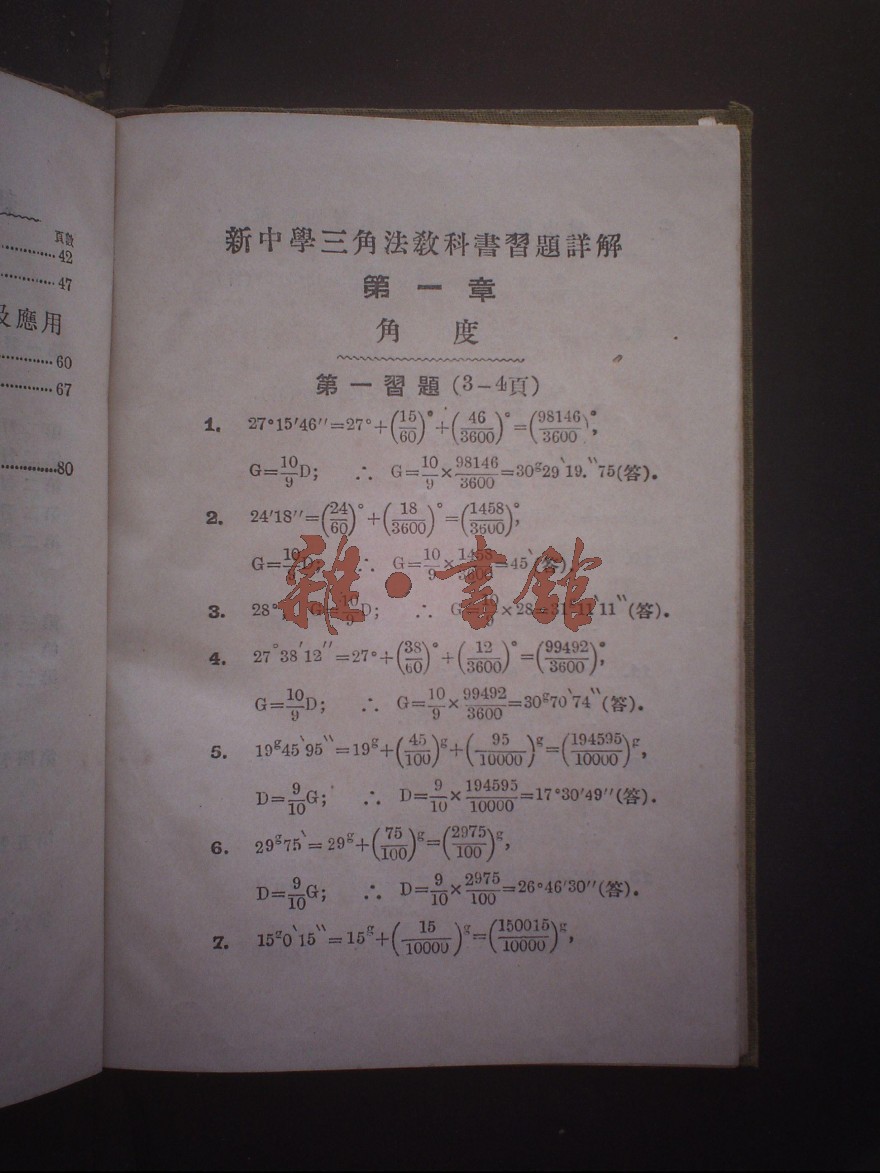 頁數
42
47
及應用
60
67
80
新中學三角法教科書習題詳解
第一章
角度
第一習題(3-4頁)
1. 27°15′46″=27°+(15/60)°+(46/3600)°=(98146/3600)°,
G=10/9D; ∴ G=10/9×98146/3600=30g29‵19.‶75(答).
2. 24′18″=(24/60)°+(18/3600)°=(1458/3600)°,
G=10/9D; ∴ G=10/9×1458/3600=45‵(答).
3. 28° G=10/9D; ∴ G=10/9×28=31g11‵11‶(答).
4. 27°38′12″=27°+(38/60)°+(12/3600)°=(99492/3600)°,
G=10/9D; ∴ G=10/9×99492/3600=30g70‵74‶(答).
5. 19g45‵95‶=19g+(45/100)g+(95/10000)g=(194595/10000)g,
D=9/10G; ∴ D=9/10×194595/10000=17°30′49″(答).
6. 29g75‵=29g+(75/100)g=(2975/100)g,
D=9/10G; ∴ D=9/10×2975/100=26°46′30″(答).
7. 15g0‵15‶=15g+(15/10000)g=(150015/10000)g,
雜·書館